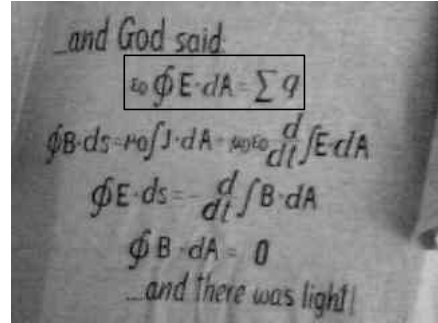 ...and God said:
ε0 ∮E·dA = ∑ q
∮B·ds = μ0∫J·dA + μ0ε0 d/dt ∫E·dA
∮E·ds = - d/dt ∫B·dA
∮B·dA = 0
...and there was light!